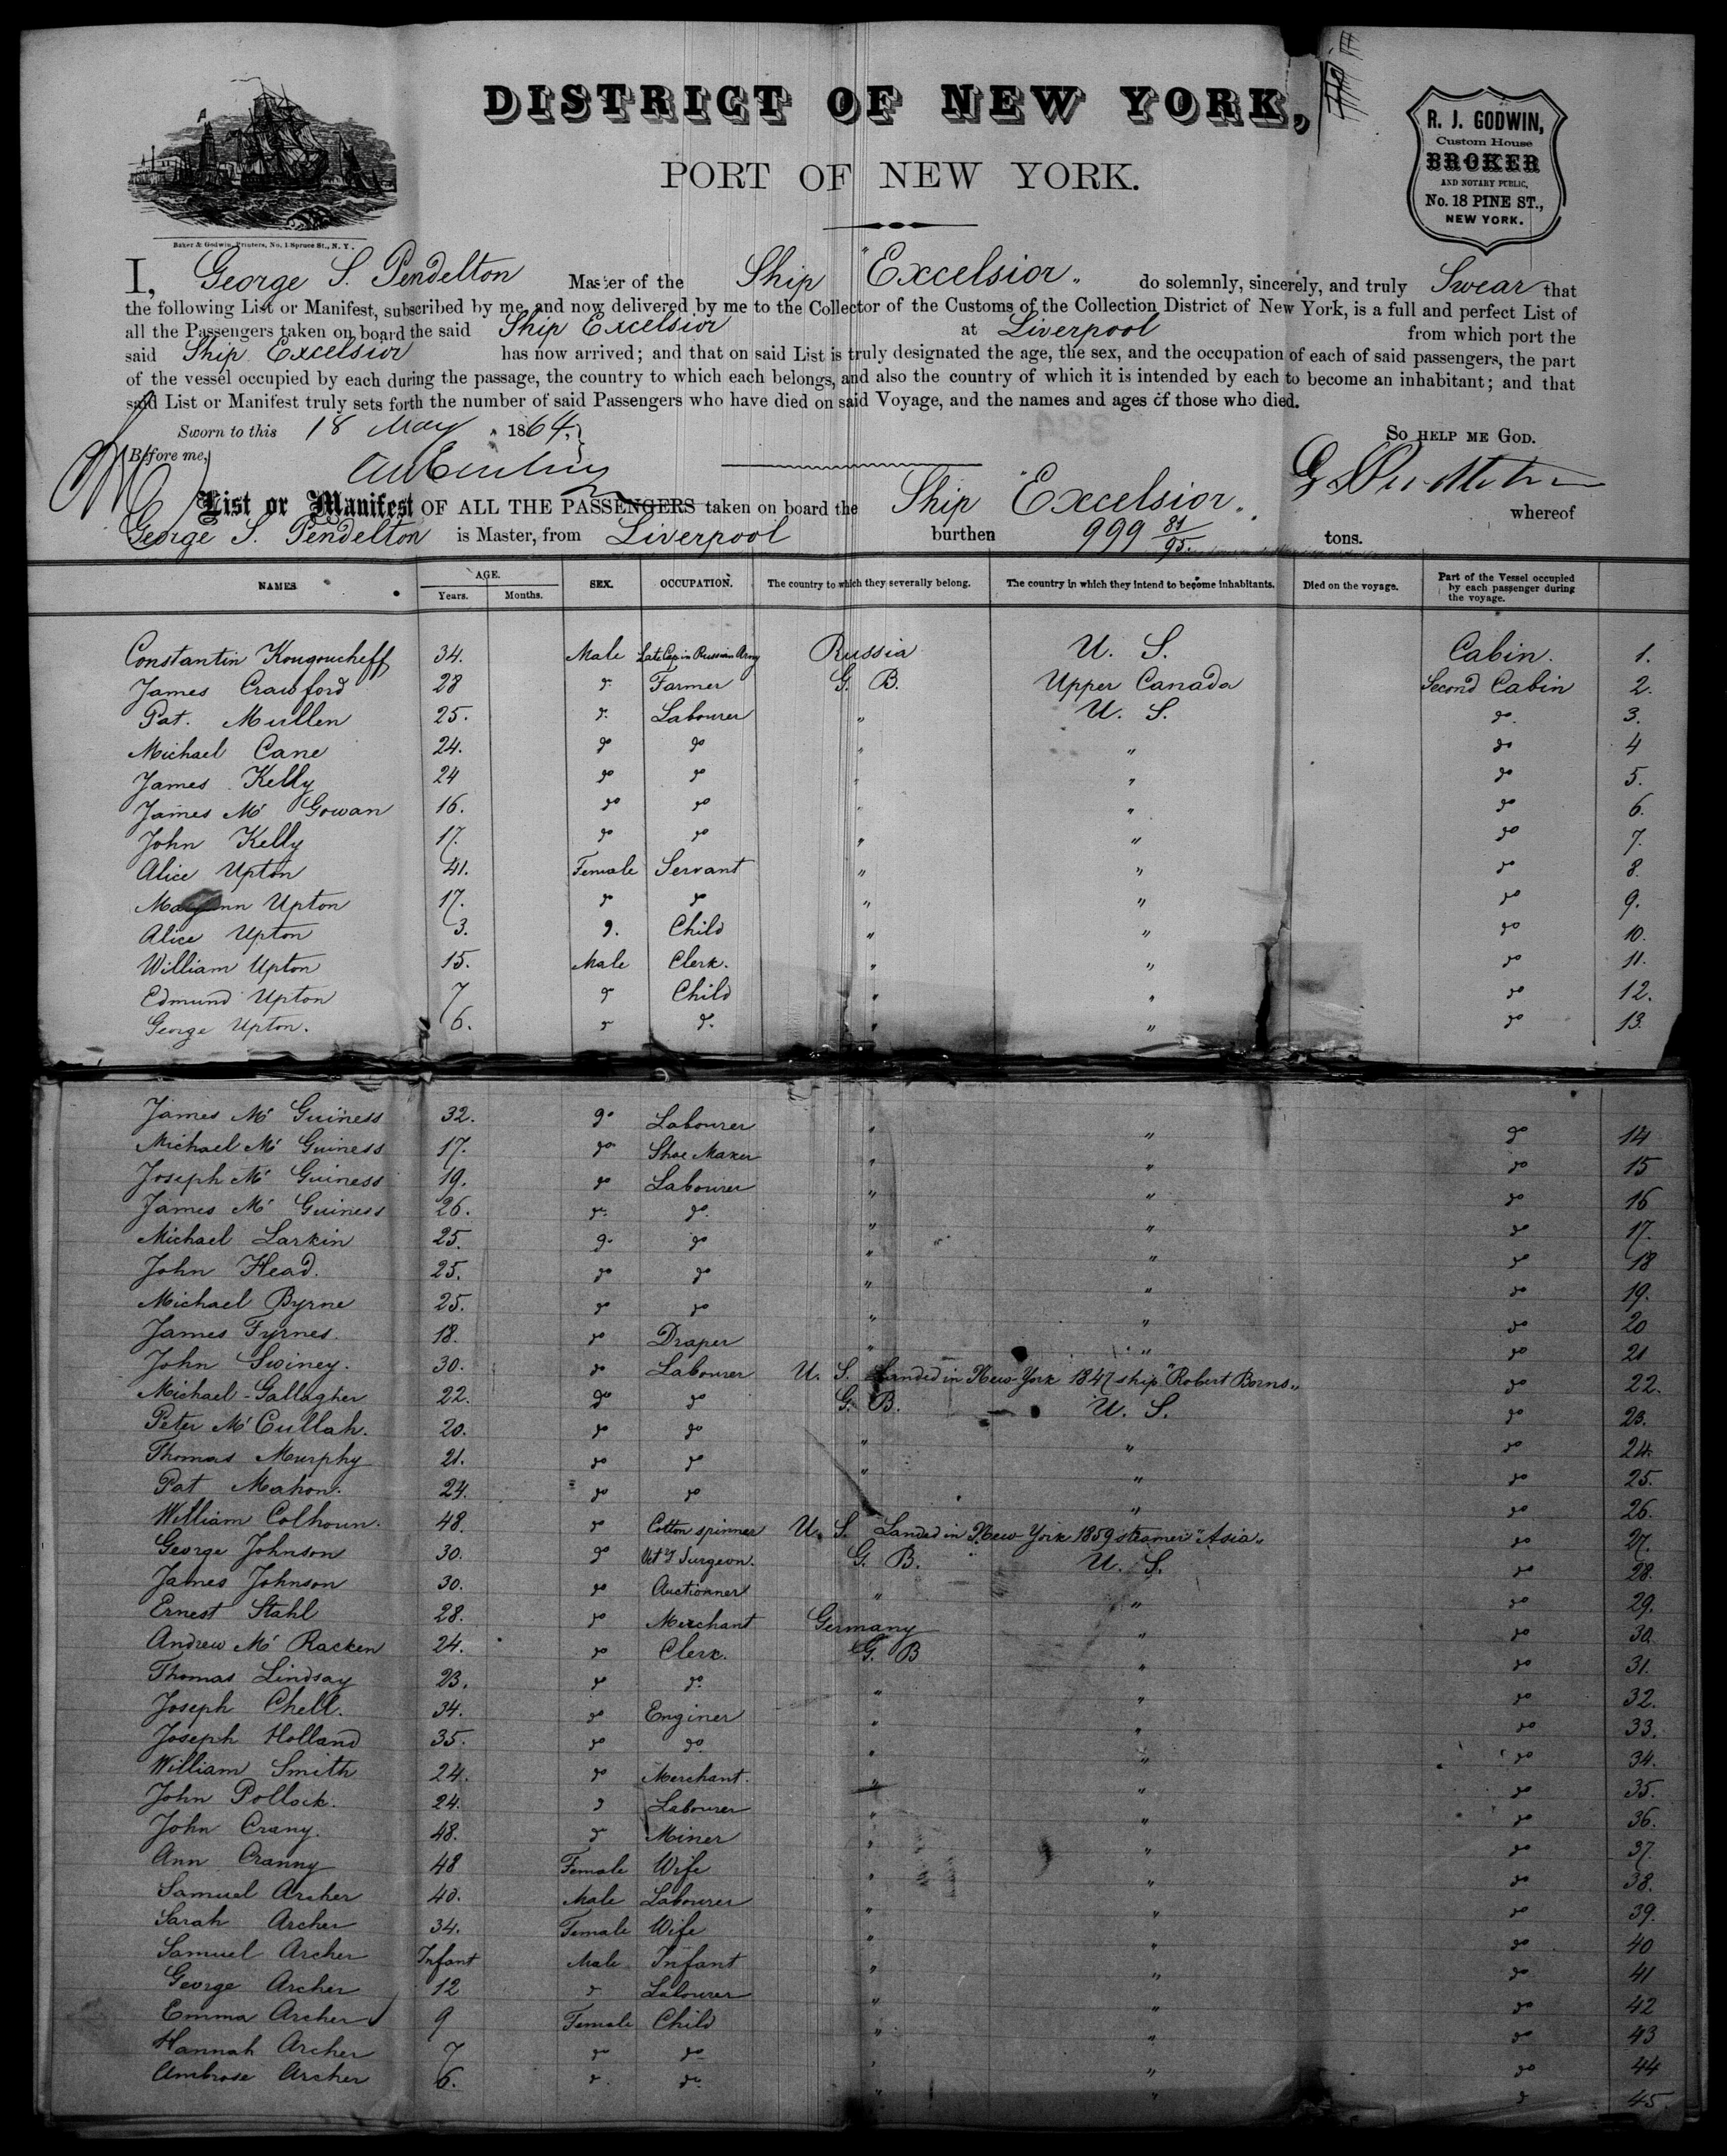 DISTRICT OF NEW YORK,
PORT OF NEW YORK.
R. J. GODWIN,
Custom House
BROKER
AND NOTARY PUBLIC,
No. 18 PINE ST.,
NEW YORK.
Baker & Godwin, Printers, No. 1 Spruce St., N. Y.
I, George S. Pendelton Master of the Ship "Excelsior" do solemnly, sincerely, and truly Swear that
the following List or Manifest, subscribed by me, and now delivered by me to the Collector of the Customs of the Collection District of New York, is a full and perfect List of
all the Passengers taken on board the said Ship Excelsior at Liverpool from which port the
said Ship Excelsior has now arrived; and that on said List is truly designated the age, the sex, and the occupation of each of said passengers, the part
of the vessel occupied by each during the passage, the country to which each belongs, and also the country of which it is intended by each to become an inhabitant; and that
said List or Manifest truly sets forth the number of said Passengers who have died on said Voyage, and the names and ages of those who died.
Sworn to this 18 May 1864.
So HELP ME GOD.
Before me,
List or Manifest OF ALL THE PASSENGERS taken on board the Ship "Excelsior" whereof
George S. Pendelton is Master, from Liverpool burthen 999 81/95 tons.
NAMES AGE. Years. Months. SEX. OCCUPATION. The country to which they severally belong. The country in which they intend to become inhabitants. Died on the voyage. Part of the Vessel occupied by each passenger during the voyage.
Constantin Kougoucheff 34. Male Late Cap in Russian Army Russia U. S. Cabin. 1.
James Crawford 28 do Farmer G. B. Upper Canada Second Cabin 2.
Pat. Mullen 25. do Labourer " U. S. do 3.
Michael Cane 24. do do " " do 4
James Kelly 24 do do " " do 5.
James Mc Gowan 16. do do " " do 6.
John Kelly 17. do do " " do 7.
Alice Upton 41. Female Servant " " do 8.
Maryann Upton 17. do do " " do 9.
Alice Upton 3. do Child " " do 10.
William Upton 15. Male Clerk. " " do 11.
Edmund Upton 7 do Child " " do 12.
George Upton. 6. do do " " do 13.
James Mc Guiness 32. do Labourer " " do 14
Michael Mc Guiness 17. do Shoe Maker " " do 15
Joseph Mc Guiness 19. do Labourer " " do 16
James Mc Guiness 26. do do " " do 17.
Michael Larkin 25. do do " " do 18
John Head. 25. do do " " do 19.
Michael Byrne 25. do do " " do 20
James Fyrnes. 18. do Draper " " do 21
John Swiney. 30. do Labourer U. S. Landed in New York 1847 ship "Robert Borns" do 22.
Michael Gallagher 22. do do G. B. U. S. do 23.
Peter Mc Cullah. 20. do do " " do 24.
Thomas Murphy 21. do do " " do 25.
Pat Mahon. 24. do do " do 26.
William Colhoun. 48. do Cotton spinner U. S. Landed in New York 1859 steamer "Asia" do 27.
George Johnson 30. do Vety Surgeon. G. B. U. S. do 28.
James Johnson 30. do Auctionner " " do 29.
Ernest Stahl 28. do Merchant Germany " do 30
Andrew Mc Racken 24. do Clerk. G. B " do 31.
Thomas Lindsay 23. do do " " do 32.
Joseph Chell. 34. do Enginer " " do 33.
Joseph Holland 35. do do " " do 34.
William Smith 24. do Merchant. " " do 35.
John Pollock. 24. do Labourer " " do 36.
John Crany. 48. do Miner " " do 37.
Ann Cranny 48 Female Wife " " do 38.
Samuel Archer 40. Male Labourer " " do 39.
Sarah Archer 34. Female Wife " " do 40
Samuel Archer Infant Male Infant " " do 41
George Archer 12 do Labourer " " do 42
Emma Archer 9 Female Child " " do 43
Hannah Archer 7 do do " " do 44
Ambrose Archer 6. do do " " do 45.